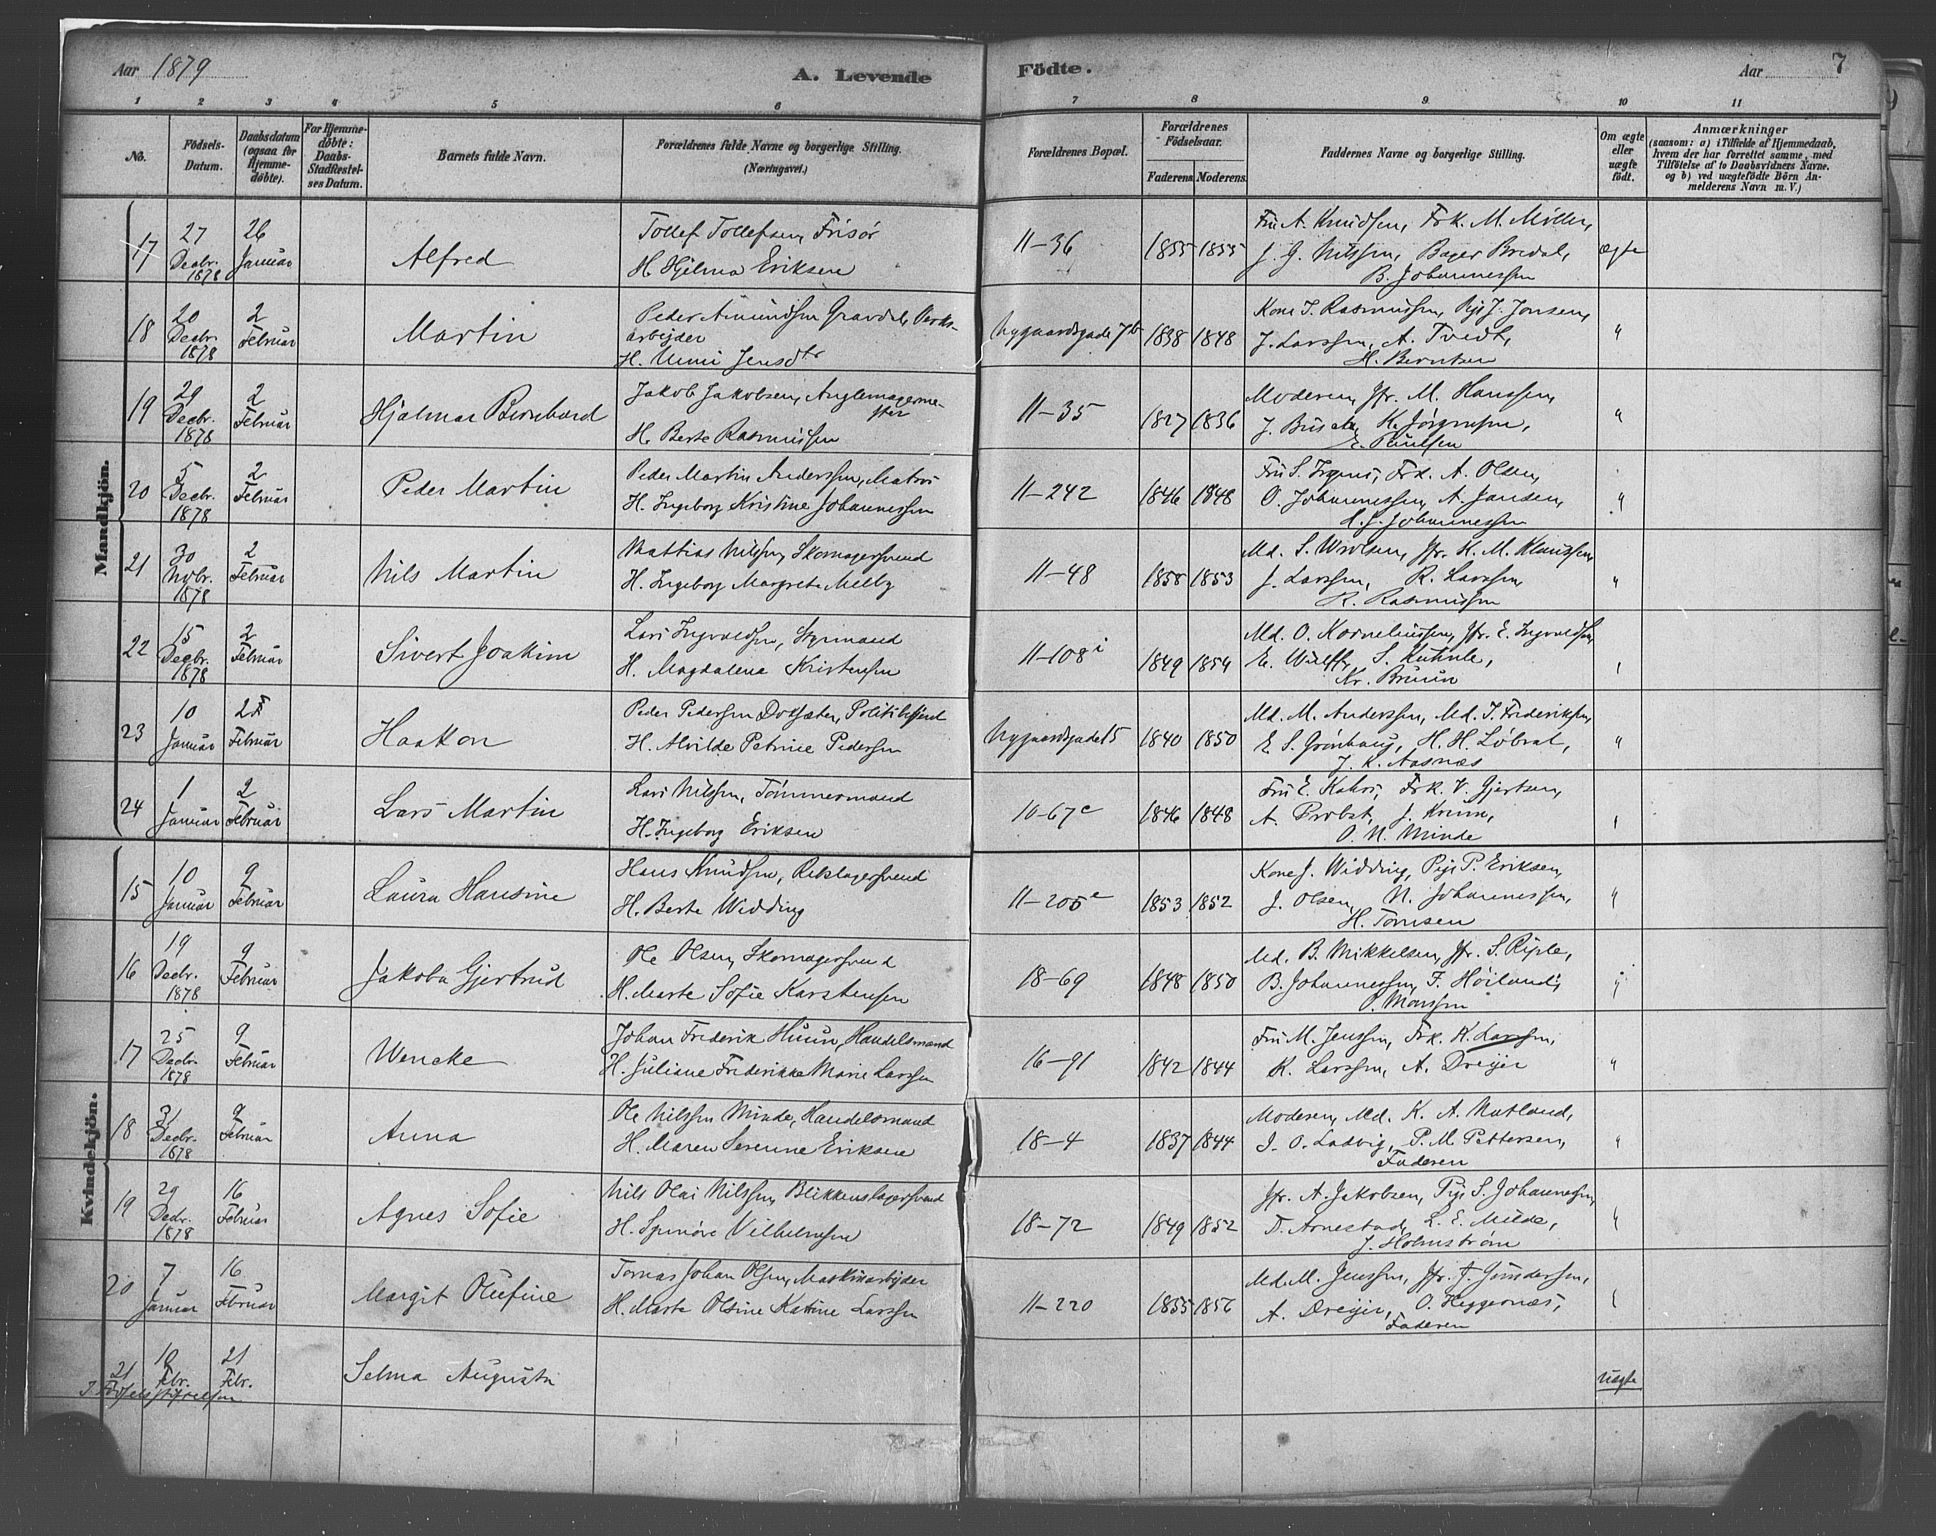 Aar 1879 A. Levende Födte. Aar 7
1 2 3 4 5 6 7 8 9 10 11
No.
Födsels-Datum.
Daabsdatum (ogsaa for Hjemme-döbte).
For Hjemme-döbte: Daabs-Stadfæstel-ses Datum.
Barnets fulde Navn.
Forældrenes fulde Navne og borgerlige Stilling.
(Næringsvei.)
Forældrenes Bopæl.
Forældrenes Födselsaar.
Faderens Moderens
Faddernes Navne og borgerlige Stilling.
Om ægte eller uægte födt.
Anmærkninger
(saasom: a) i Tilfælde af Hjemmedaab,
hvem der har forrettet samme, med
Tilföielse af to Daabsvidners Navne,
og b) ved uægtefödte Börn An-
melderens Navn m. V.)
Mandkjön.
17 27 Decbr. 1878 26 Januar Alfred
Tollef Tollefsen, Frisør
H. Hjelma Eriksen
11-36 1855 1855
Fru A. Knudsen, Frk. M. Møller,
J. G. Nilssen, Bager Bredal,
B. Johannessen
ægte
18 20 Decbr. 1878 2 Februar Martin
Peder Amundsen Gravdal, Verks-
arbejder
H. Unni Jensdtr
Nygaardsgade 7b 1838 1848
Kone I. Rasmussen, Pige J. Jonsen,
J. Larssen, A. Tvedt,
H. Berntsen
"
19 29 Decbr. 1878 2 Februar Hjalmar Bernhard
Jakob Jakobsen, Anglemagerme-
ster
H. Berte Rasmussen
11-35 1827 1836
Moderen, Jfr. M. Hanssen,
J. Busch, K. Jørgensen,
E. Paulsen
"
20 5 Decbr. 1878 2 Februar Peder Martin
Peder Martin Anderssen, Matros
H. Ingeborg Kristine Johannessen
11-242 1846 1848
Fru S. Irgens, Frk. A. Olsen,
O. Johannessen, A. Jansen,
Johannessen
"
21 30 Novbr. 1878 2 Februar Nils Martin
Mattias Nilssen, Skomagersvend
H. Ingeborg Margrete Melby
11-48 1858 1853
Md. S. Wolsen, Jfr. K. M. Klaussen,
J. Larssen, R. Larssen,
R. Rasmussen
"
22 15 Decbr. 1878 2 Februar Sivert Joakim
Lars Ingvaldsen, Styrmand
H. Magdalena Kristensen
11-108i 1849 1854
Md. O. Korneliussen, Jfr. E. Ingvaldsen,
E. Wulff, S. Kuhnle,
Kr. Bruun
"
23 10 Januar 2 Februar Haakon
Peder Pedersen Dotsæter, Politibetjent
H. Alvilde Petrine Pedersen
Nygaardsgade 15 1840 1850
Md. M. Anderssen, Md. I. Frederiksen,
E. S. Grønhaug, H. H. Løbrat,
J. K. Aasnæs
"
24 1 Januar 2 Februar Lars Martin
Lars Nilssen, Tømmermand
H. Ingeborg Eriksen
10-67c 1846 1848
Fru E. Kahrs, Frk. V. Gjertsen,
A. Probst, J. Krum,
O. N. Minde
"
Kvindekjön.
15 10 Januar 9 Februar Laura Hansine
Hans Knudsen, Rebslagersvend
H. Berte Widding
11-205e 1853 1852
Kone J. Widding, Pige P. Eriksen,
J. Olsen, N. Johannessen,
H. Tomsen
"
16 19 Decbr. 1878 9 Februar Jakoba Gjertrud
Ole Olsen, Skomagersvend
H. Marte Sofie Karstensen
18-69 1848 1850
Md. B. Mikkelsen, Jfr. S. Riple,
B. Johannessen, F. Høiland,
O. Monssen
"
17 25 Decbr. 1878 9 Februar Wencke
Johan Frederik Huun, Handelsmand
H. Juliane Frederikke Marie Larssen
16-91 1842 1844
Fru M. Jenssen, Frk. K. Larssen,
K. Larssen, A. Dreyer
"
18 31 Decbr. 1878 9 Februar Anna
Ole Nilssen Minde, Handelsmand
H. Maren Serenne Eriksen
18-4 1837 1844
Moderen, Md. K. A. Natland,
I. O. Ladvig, P. M. Pettersen,
Faderen
"
19 29 Decbr. 1878 16 Februar Agnes Sofie
Nils Olai Nilssen, Blikkenslagersvend
H. Synnøve Vilhelmsen
18-72 1849 1852
Jfr. A. Jakobsen, Pige S. Johannessen,
T. Arnestad, L. E. Milde,
J. Holmstrøm
"
20 7 Januar 16 Februar Margit Olufine
Tomas Johan Olsen, Maskinarbejder
H. Marta Olsine Katrine Larssen
11-220 1855 1856
Md. M. Jenssen, Jfr. J. Gundersen,
A. Dreyer, O. Heggernæs,
Faderen
"
21 10 Febr. 21 Febr. Selma Augusta uægte
I Fødselsstiftelsen